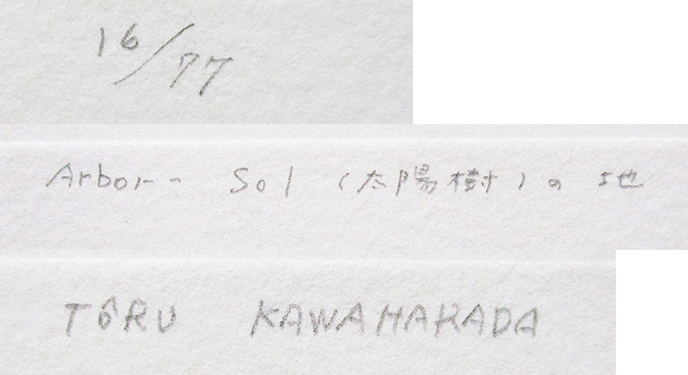 16/77
Arbor- Sol (太陽樹)の地
TÔRU KAWAHARADA